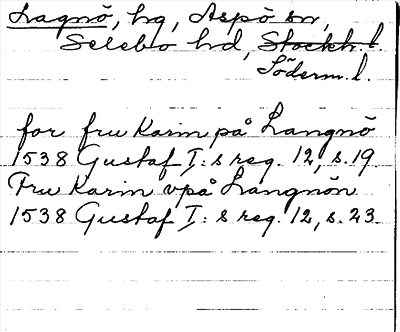 Lagnö, hg, Aspö sn,
Selebo hd, Stockh. l.
Söderm. l.
for fru Karin på Langnö
1538 Gustaf I:s reg. 12, s. 19
Fru Karin vpå Langnön
1538 Gustaf I:s reg. 12, s. 23